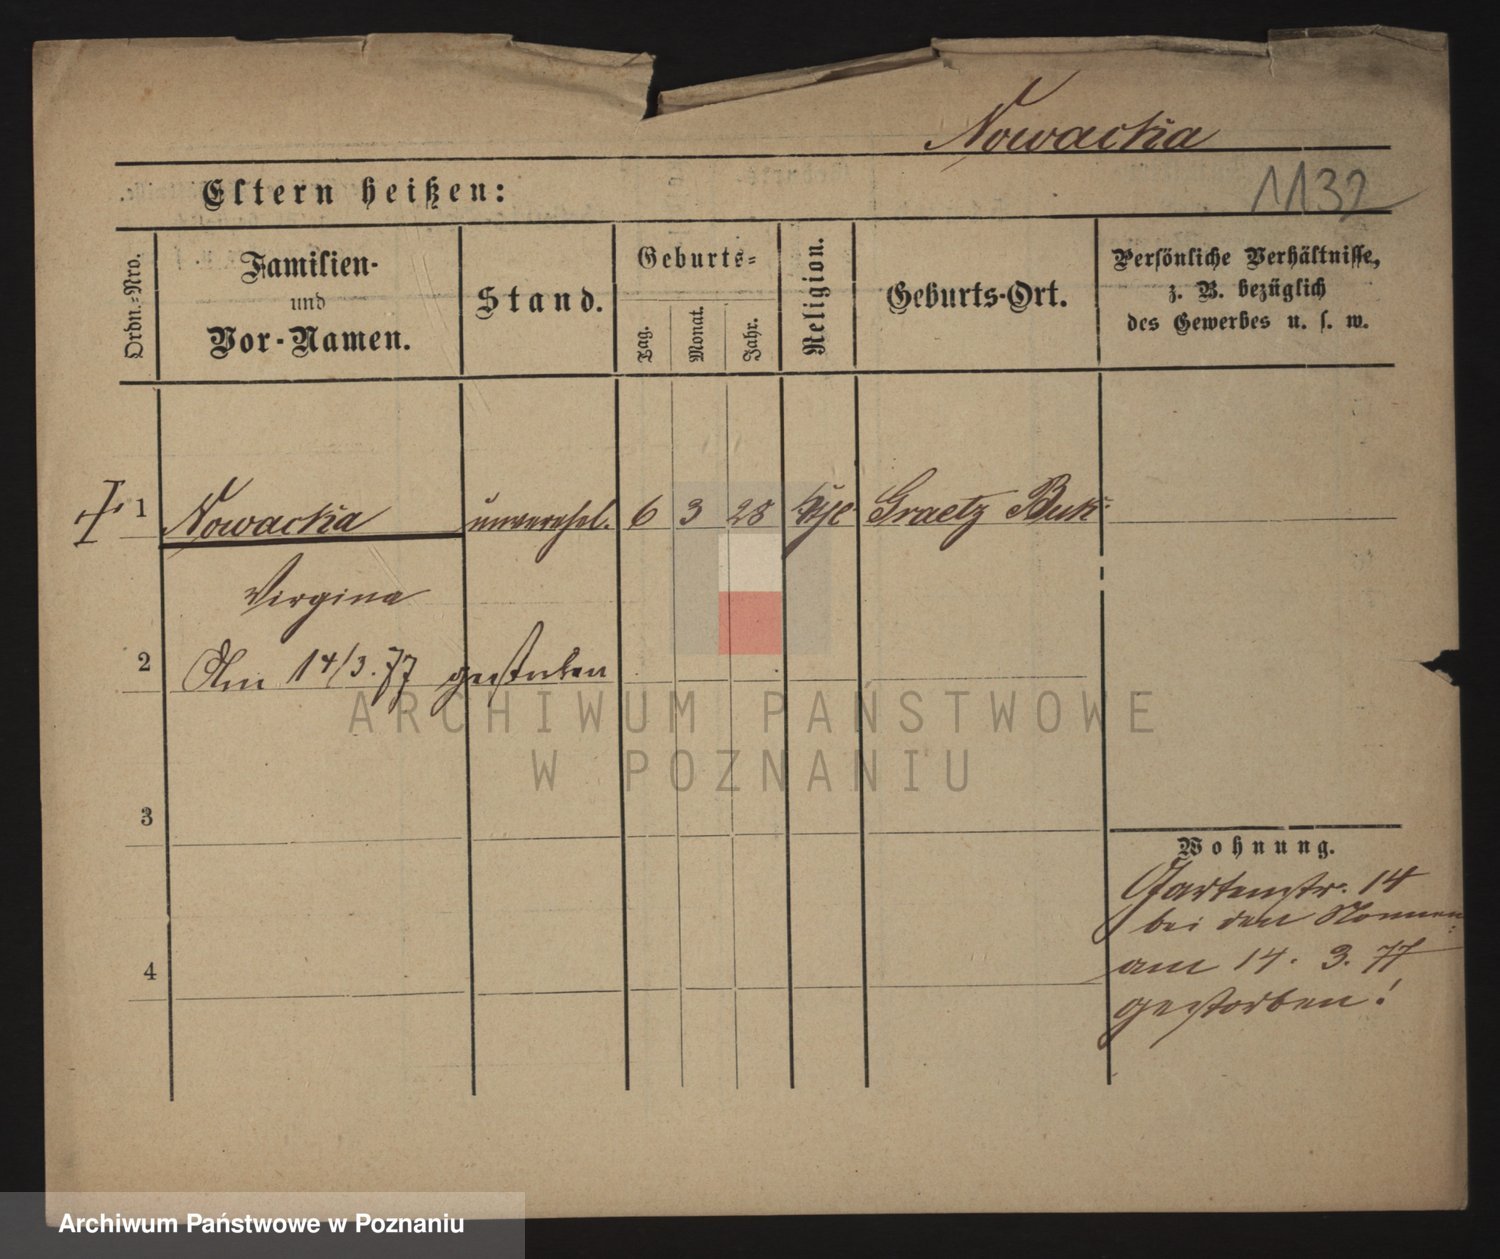 Nowacka
1132
Eltern heißen:
Ordn.-Nro.
Familien-
und
Vor-Namen.
Stand.
Geburts-
Tag.
Monat.
Jahr.
Religion.
Geburts-Ort.
Persönliche Verhältnisse,
z. B. bezüglich
des Gewerbes u. s. w.
1 Nowacka unverehel. 6 3 28 Graetz Buk
Virgina
2 Am 14/3.77 gestorben
3
Wohnung.
Gartenstr. 14
bei den Nonnen
4
am 14. 3. 77
gestorben!
ARCHIWUM PAŃSTWOWE
W POZNANIU
Archiwum Państwowe w Poznaniu